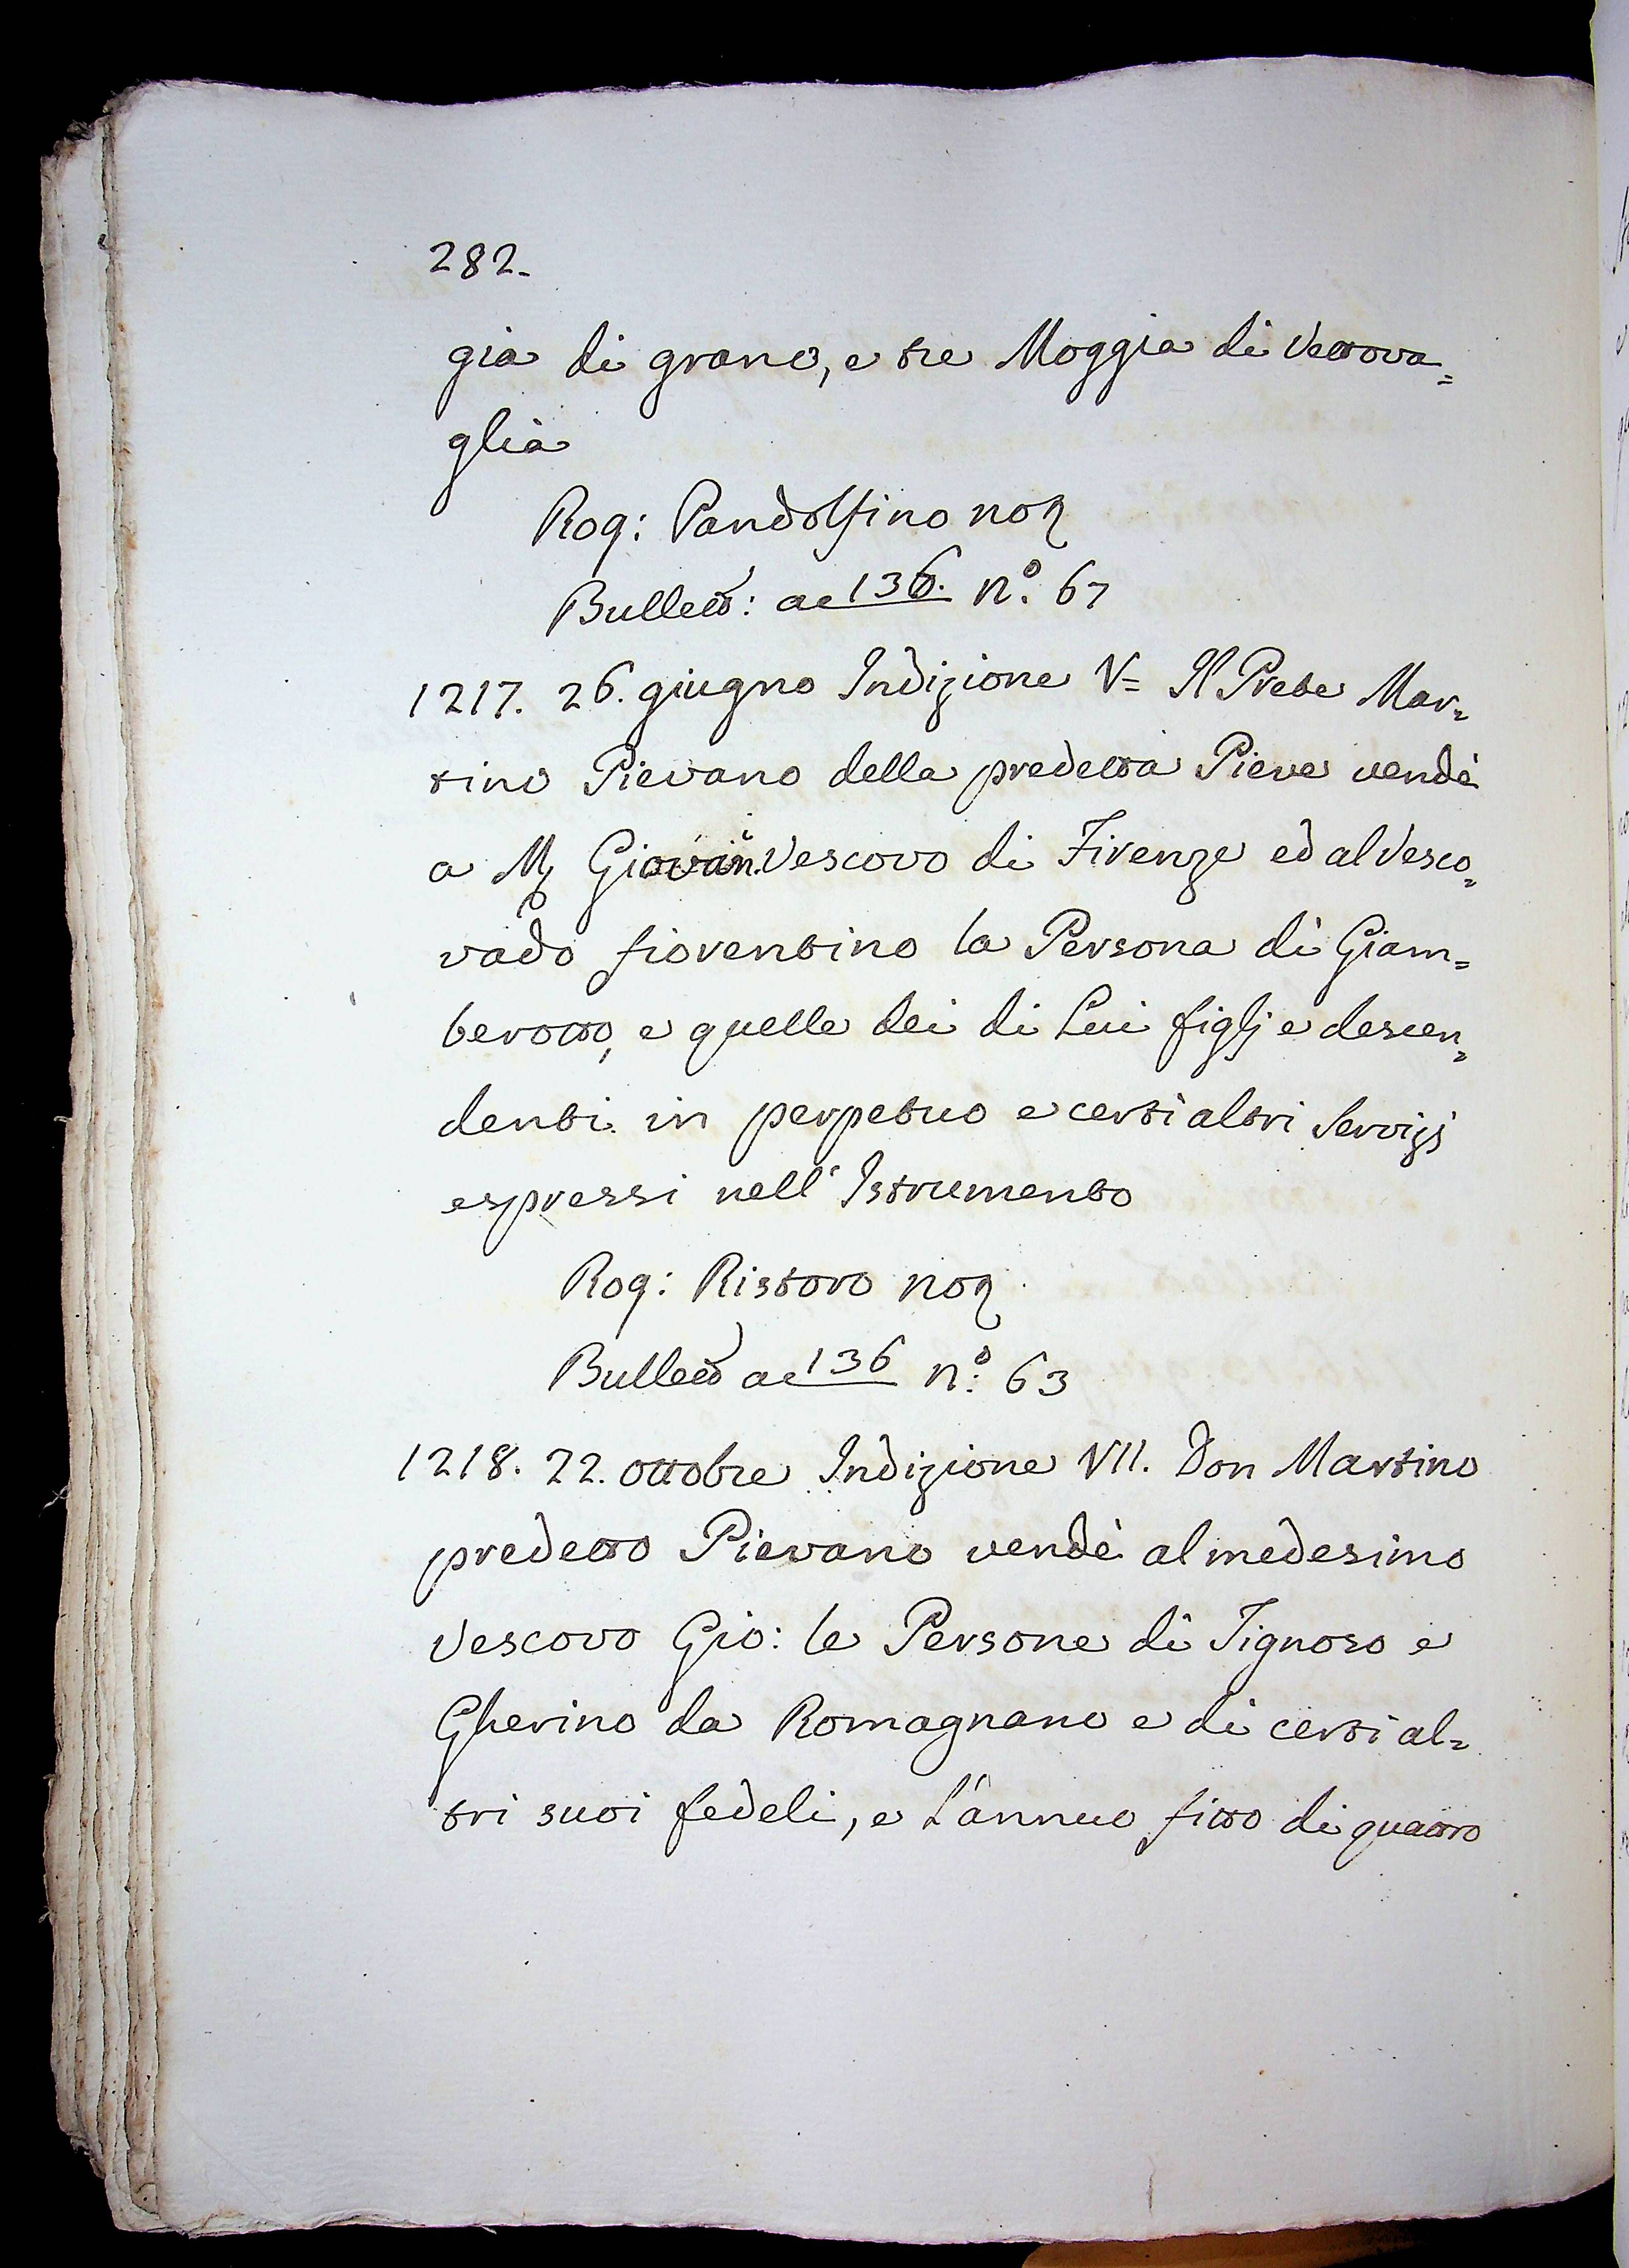 282.
gia di grano, e tre Moggia di Vettova=
glia
Rog: Pandolfino not
Bullett: ac 136. n.º 67
1217. 26. giugno Indizione V= Il Prete Mar=
tino Pievano della predetta Pieve vendè
a M Giovañ. Vescovo di Firenze ed al Vesco=
vado fiorentino la Persona di Giam=
berotto, e quelle dei di Lui figlj e descen=
denti in perpetuo e certi altri Servizj
espressi nell' Istrumento
Rog: Ristoro not
Bullett ac 136 n.º 63
1218. 22. ottobre Indizione VII. Don Martino
predetto Pievano vendè al medesimo
Vescovo Gio: le Persone di Tignoso e
Gherino da Romagnano e di certi al=
tri suoi fedeli, e l'annuo fitto di quattro